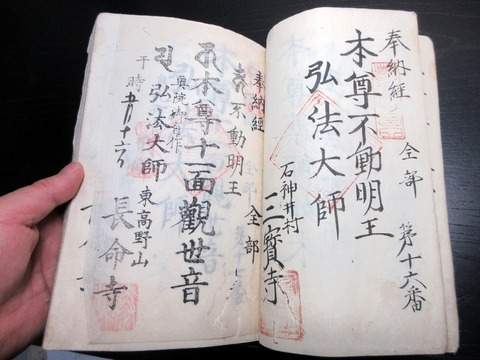 奉納經
全部
第十六番
本尊不動明王
弘法大師
石神井村
三寶寺
奉納經
全部
不動明王
本尊十一面觀世音
弘法大師
東高野山
長命寺